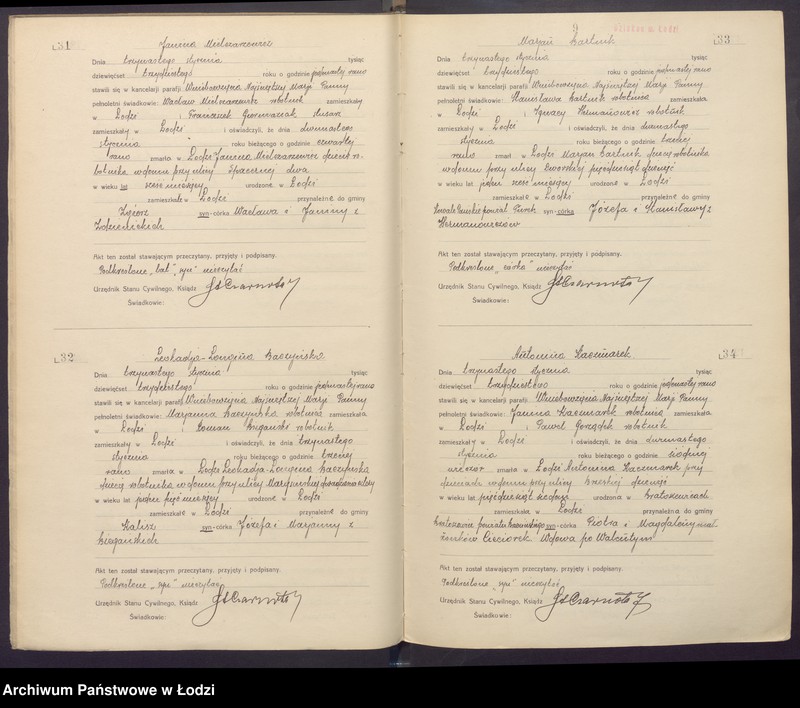 31
Janina Mielczarewicz
Dnia trzynastego stycznia tysiąc
dziewięćset trzydziestego roku o godzinie jedenastej rano
stawili się w kancelarji parafji Wniebowzięcia Najświętszej Marji Panny
pełnoletni świadkowie: Wacław robotnik zamieszkały
w Łodzi i Franciszek ślusarz
zamieszkały w Łodzi i oświadczyli, że dnia dwunastego
stycznia roku bieżącego o godzinie czwartej
rano zmarła w Łodzi Janina dziecię ro-
botnika w domu przy ulicy Spacernej dwa
w wieku lat sześć miesięcy urodzone w Łodzi
zamieszkałe w Łodzi przynależne do gminy
Zgierz syn-córka Wacława i Janiny z
Akt ten został stawającym przeczytany, przyjęty i podpisany.
Podkreślone „lat”, „syn” nieczytać
Urzędnik Stanu Cywilnego, Ksiądz
Świadkowie:
32
Leokadja-Longina Baczyńska
Dnia trzynastego stycznia tysiąc
dziewięćset trzydziestego roku o godzinie jedenastej rano
stawili się w kancelarji parafji Wniebowzięcia Najświętszej Marji Panny
pełnoletni świadkowie: Maryanna Baczyńska robotnica zamieszkała
w Łodzi i Roman robotnik
zamieszkały w Łodzi i oświadczyli, że dnia trzynastego
stycznia roku bieżącego o godzinie trzeciej
rano zmarła w Łodzi Leokadja-Longina Baczyńska
dziecię robotnika w domu przy ulicy
w wieku lat jeden pięć miesięcy urodzone w Łodzi
zamieszkałe w Łodzi przynależne do gminy
Kalisz syn-córka Józefa i Maryanny z
Akt ten został stawającym przeczytany, przyjęty i podpisany.
Podkreślone „syn” nieczytać
Urzędnik Stanu Cywilnego, Ksiądz
Świadkowie:
9
w Łodzi
33
Marjan
Dnia trzynastego stycznia tysiąc
dziewięćset trzydziestego roku o godzinie jedenastej rano
stawili się w kancelarji parafji Wniebowzięcia Najświętszej Marji Panny
pełnoletni świadkowie: Stanisława robotnica zamieszkała
w Łodzi i Ignacy robotnik
zamieszkały w Łodzi i oświadczyli, że dnia dwunastego
stycznia roku bieżącego o godzinie trzeciej
rano zmarł w Łodzi Marjan dziecię robotnika
w domu przy ulicy Dworskiej pięćdziesiąt dziewięć
w wieku lat jeden sześć miesięcy urodzone w Łodzi
zamieszkałe w Łodzi przynależne do gminy
powiat Turek syn-córka Józefa i Stanisławy z
Akt ten został stawającym przeczytany, przyjęty i podpisany.
Podkreślone „córka” nieczytać
Urzędnik Stanu Cywilnego, Ksiądz
Świadkowie:
34
Antonina Kaczmarek
Dnia trzynastego stycznia tysiąc
dziewięćset trzydziestego roku o godzinie jedenastej rano
stawili się w kancelarji parafji Wniebowzięcia Najświętszej Marji Panny
pełnoletni świadkowie: Janina Kaczmarek robotnica zamieszkała
w Łodzi i Paweł robotnik
zamieszkały w Łodzi i oświadczyli, że dnia dwunastego
stycznia roku bieżącego o godzinie siódmej
wieczór zmarła w Łodzi Antonina Kaczmarek przy
w domu przy ulicy Brzeskiej dziewięć
w wieku lat pięćdziesiąt siedem urodzona w
zamieszkała w Łodzi przynależne do gminy
syn-córka Piotra i Magdaleny mał-
żonków Cieciorek. Wdowa po Walentym
Akt ten został stawającym przeczytany, przyjęty i podpisany.
Podkreślone „syn” nieczytać
Urzędnik Stanu Cywilnego, Ksiądz
Świadkowie:
Archiwum Państwowe w Łodzi